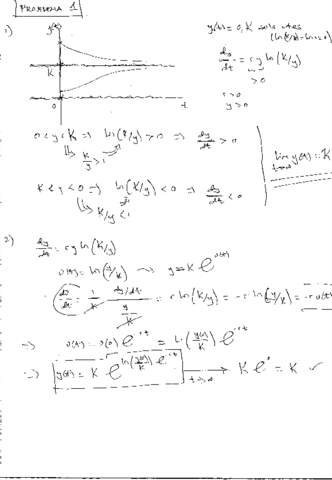 PROBLEMA 1
1)
y(t)
K
0
t
y(t)=0, K soluções
dy/dt = r y ln(K/y)
> 0
r > 0
y > 0
0 < y < K => ln(K/y) > 0 => dy/dt > 0
K/y > 1
lim y(t) = K
t→∞
K < y < 0 => ln(K/y) < 0 => dy/dt < 0
K/y < 1
2) dy/dt = r y ln(K/y)
v(t) = ln(y/K) → y = K e^{v(t)}
dv/dt = 1/K dy/dt / (y/K) = r ln(K/y) = -r ln(y/K) = -r v(t)
=> v(t) = v(0) e^{-rt} = ln(y(0)/K) e^{-rt}
=> y(t) = K e^{ln(y(0)/K) e^{-rt}} → K e^0 = K ✓
t→∞